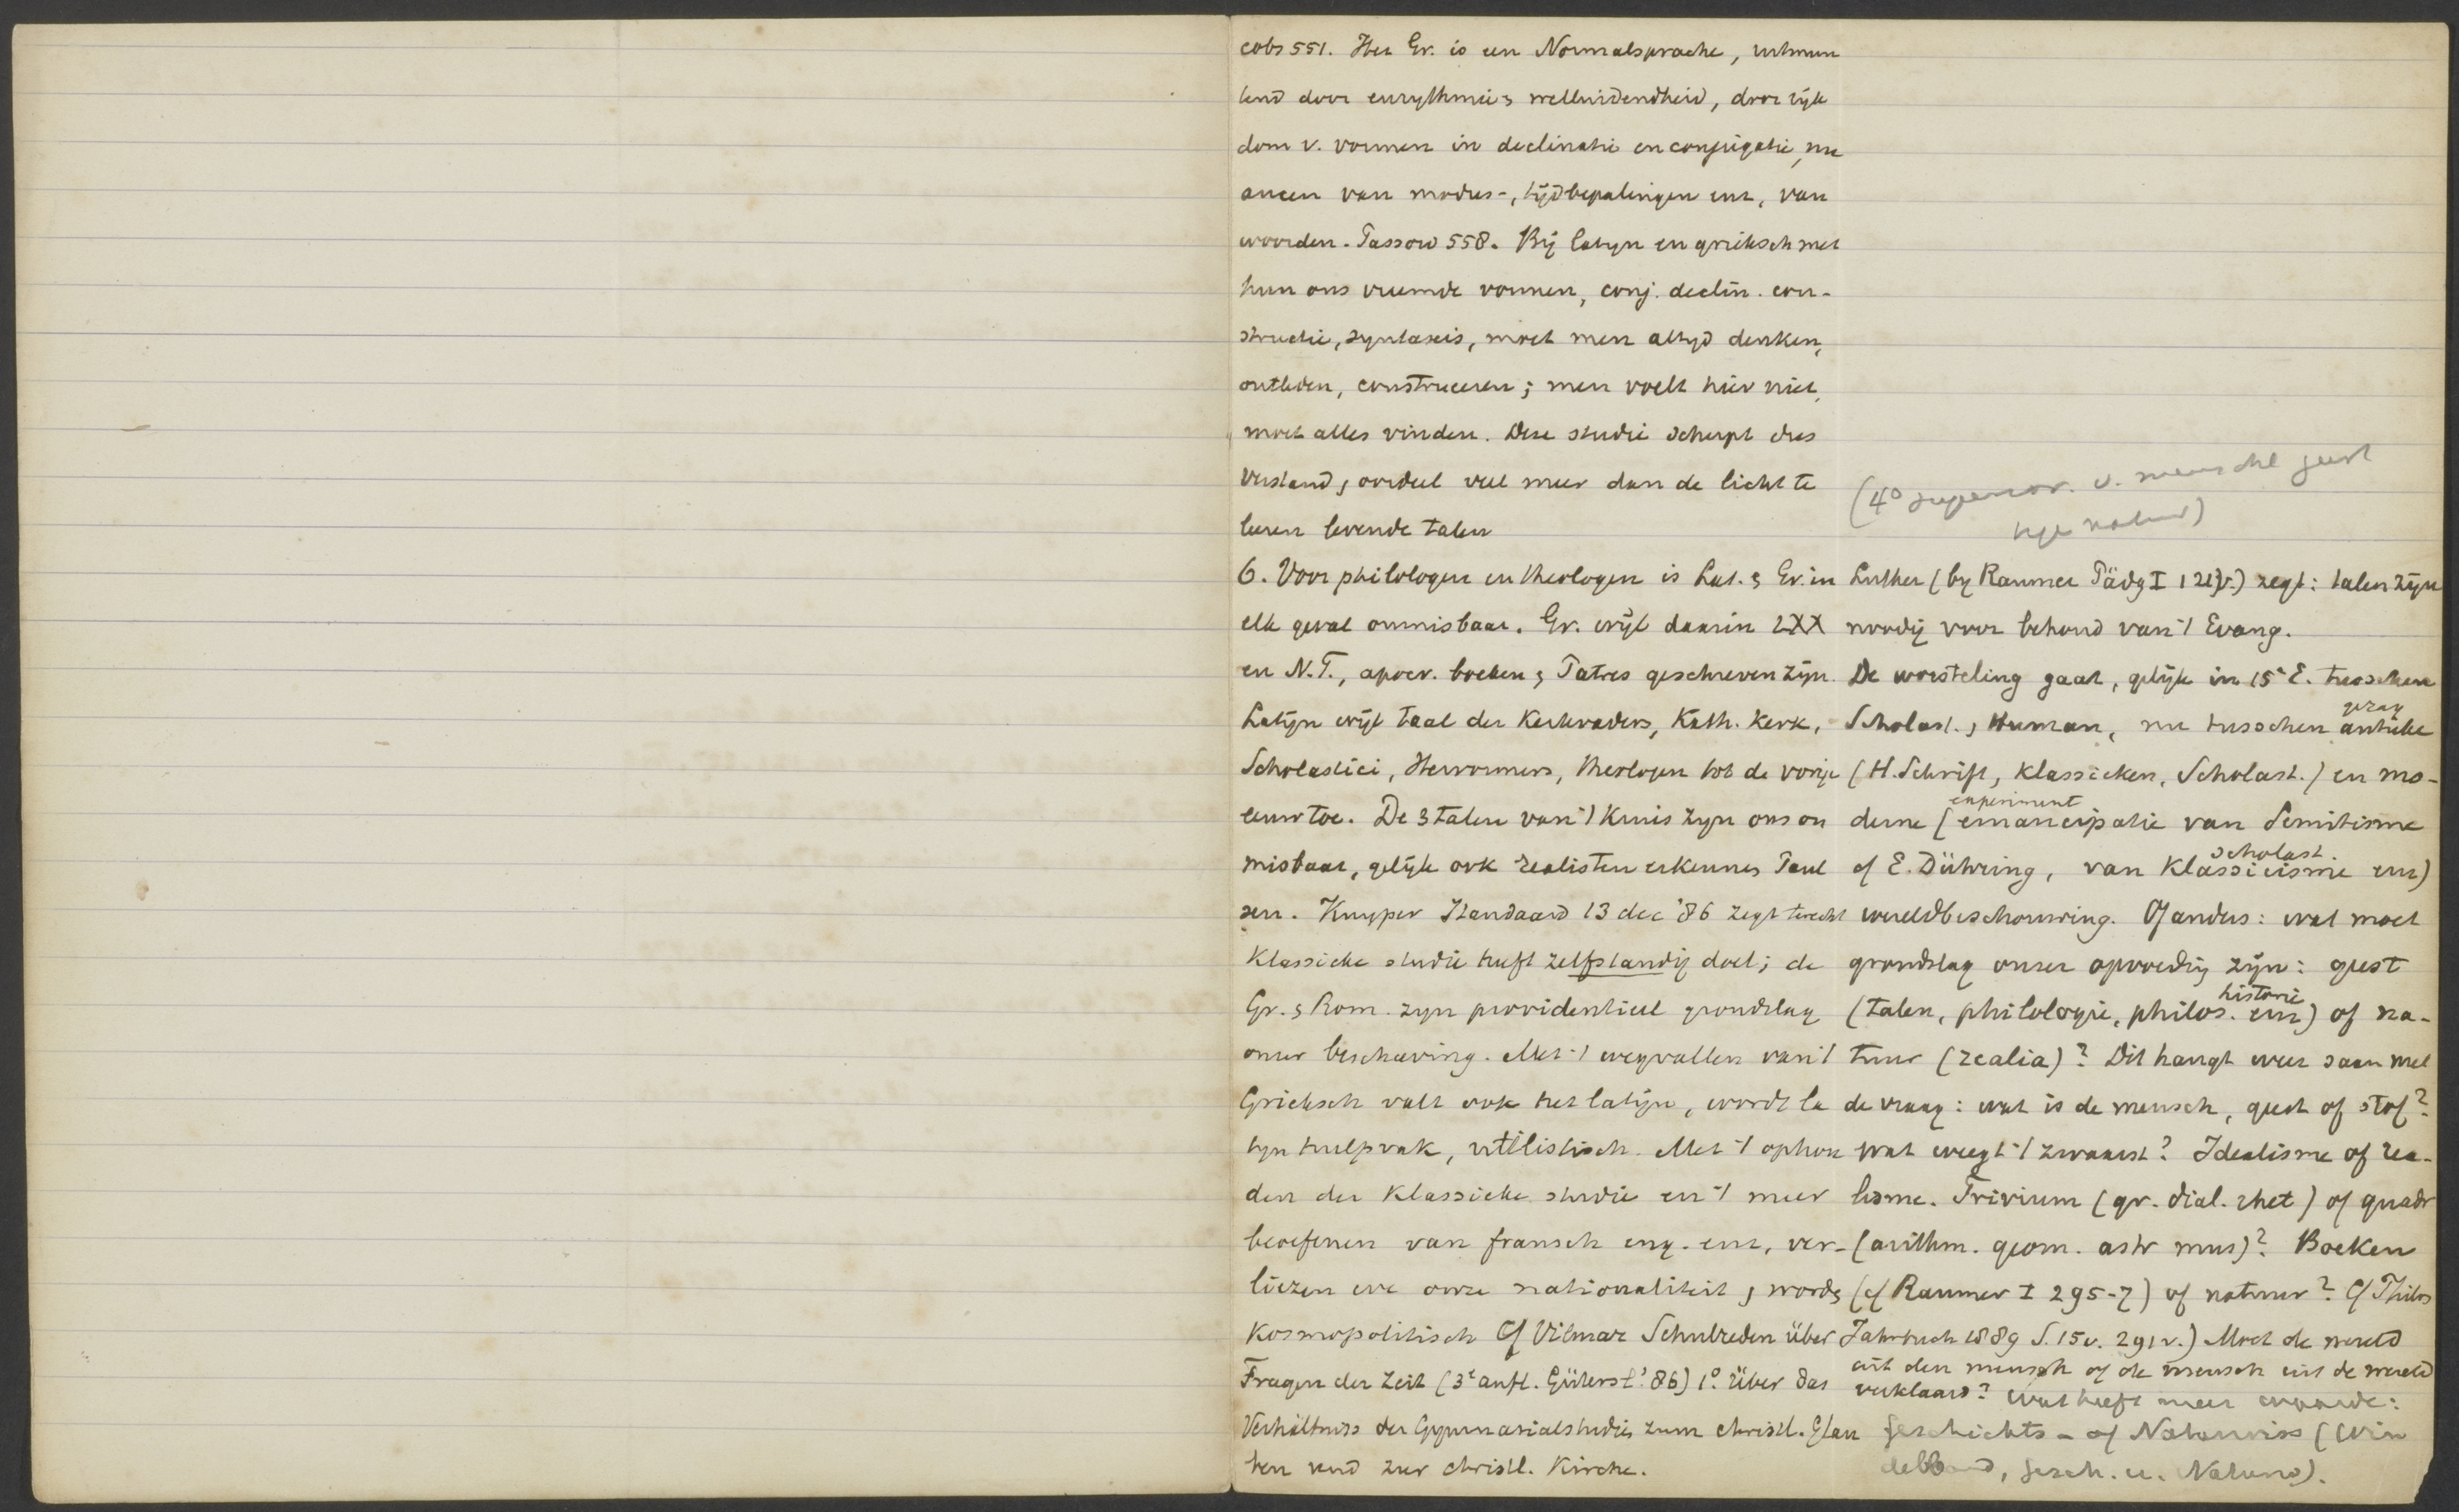 cobs 551. Het Gr. is een Normalsprache, uitmun
tend door eurythmie & welluidendheid, door rijk
dom v. vormen in declinatie en conjugatie, nu
ancen van modus-, tijdbepalingen enz, van
woorden. Passow 558. Bij latijn en grieksch met
hun ons vreemde vormen, conj. declin. con-
structie, syntaxis, moet men altijd denken,
ontleden, construeeren; men voelt hier niet,
moet alles vinden. Deze studie scherpt dus
verstand & oordeel veel meer dan de licht te
leeren levende talen
6. Voor philologen en theologen is Lat. & Gr. in
elk geval onmisbaar. Gr. wijl daarin LXX
en N.T., apocr. boeken & Patres geschreven zijn.
Latijn wijl taal der Kerkvaders, Kath. Kerk,
Scholastici, Hervormers, theologen tot de vorige
eeuw toe. De 3 talen van 't Kruis zijn ons on
misbaar, gelijk ook realisten erkennen Paul
sen. Kuyper Standaard 13 dec '86 zegt terecht
Klassieke studie heeft zelfstandig doel; de
Gr. & Rom. zijn providentieel grondslag
onzer beschaving. Met 't wegvallen van 't
Grieksch valt ook het latijn, wordt la
tijn hulpvak, utilistisch. Met 't ophou
den der Klassieke studie en 't meer
beoefenen van fransch eng. enz, ver-
liezen we onze nationaliteit & worden
Kosmopolitisch Cf Vilmar Schulreden über
Fragen der Zeit (3e aufl. Gütersl. '86) 1o. Über das
Verhältniss der Gymnasialstudien zum christl. Glau
ben und zur christl. Kirche.
(4o superior. v. mensche geest
Luther (by Raumer Päd I 121v.) zegt: talen zijn
noodig voor behoud van 't Evang.
De worsteling gaat, gelijk in 15e E. tusschen
gezag
Scholast. & Human, nu tusschen antieke
(H. Schrift, Klassieken, Scholast.) en mo-
experiment
derne (emancipatie van Semitisme
scholast
cf E. Dühring, van Klassicisme enz)
wereldbeschouwing. Of anders: wat moet
grondslag onzer opvoeding zijn: geest
historie
(talen, philologie, philos. enz) of na-
tuur (realia)? Dit hangt weer saam met
de vraag: wat is de mensch, geest of stof?
Wat weegt 't zwaarst? Idealisme of rea-
lisme. Trivium (gr. dial. rhet) of quadr
(arithm. geom. astr mus)? Boeken
(cf Raumer I 295-7) of natuur? Cf Philos
Jahrbuch 1889 S. 15v. 291v.) Moet de wereld
uit den mensch of de mensch uit de wereld
verklaard? Wat heeft meer waarde:
Geschichts- of Naturwiss (Win
delband, Gesch. u. Naturw).